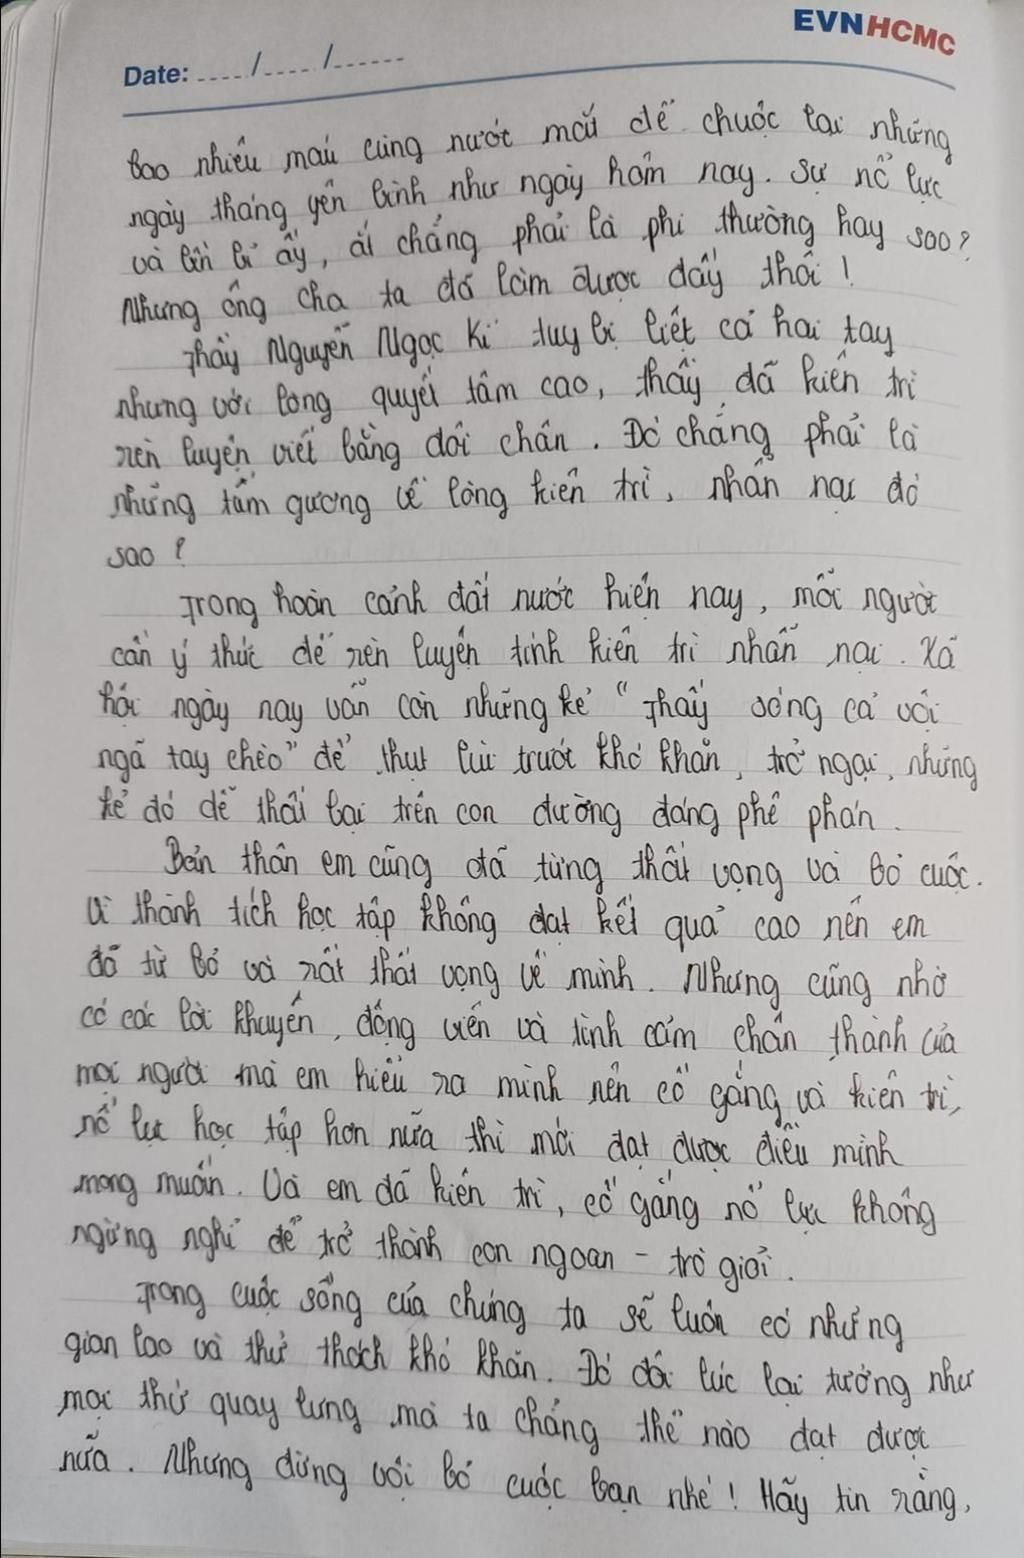 EVNHCMC
Date: ..../..../......
bao nhiêu máu cùng nước mắt để chuộc lại những
ngày tháng yên bình như ngày hôm nay. Sự nỗ lực
và bền bỉ ấy, ắt chẳng phải là phi thường hay sao?
Nhưng ông cha ta đã làm được đấy thôi!
Thầy Nguyễn Ngọc Kí tuy bị liệt cả hai tay
nhưng với lòng quyết tâm cao, thầy đã kiên trì
rèn luyện viết bằng đôi chân. Đó chẳng phải là
những tấm gương về lòng kiên trì, nhẫn nại đó
sao?
Trong hoàn cảnh đất nước hiện nay, mỗi người
cần ý thức để rèn luyện tính kiên trì nhẫn nại. Xã
hội ngày nay vẫn còn những kẻ "Thấy sóng cả vội
ngã tay chèo" để thụt lùi trước khó khăn, trở ngại, những
kẻ đó dễ thất bại trên con đường đáng phê phán.
Bản thân em cũng đã từng thất vọng và bỏ cuộc.
Vì thành tích học tập không đạt kết quả cao nên em
đã từ bỏ và rất thất vọng về mình. Nhưng cũng nhờ
có các lời khuyên, động viên và tình cảm chân thành của
mọi người mà em hiểu ra mình nên cố gắng và kiên trì,
nỗ lực học tập hơn nữa thì mới đạt được điều mình
mong muốn. Và em đã kiên trì, cố gắng nỗ lực không
ngừng nghỉ để trở thành con ngoan - trò giỏi.
Trong cuộc sống của chúng ta sẽ luôn có những
gian lao và thử thách khó khăn. Đó đôi lúc lại tưởng như
mọi thứ quay lưng mà ta chẳng thể nào đạt được
nữa. Nhưng đừng vội bỏ cuộc bạn nhé! Hãy tin rằng,